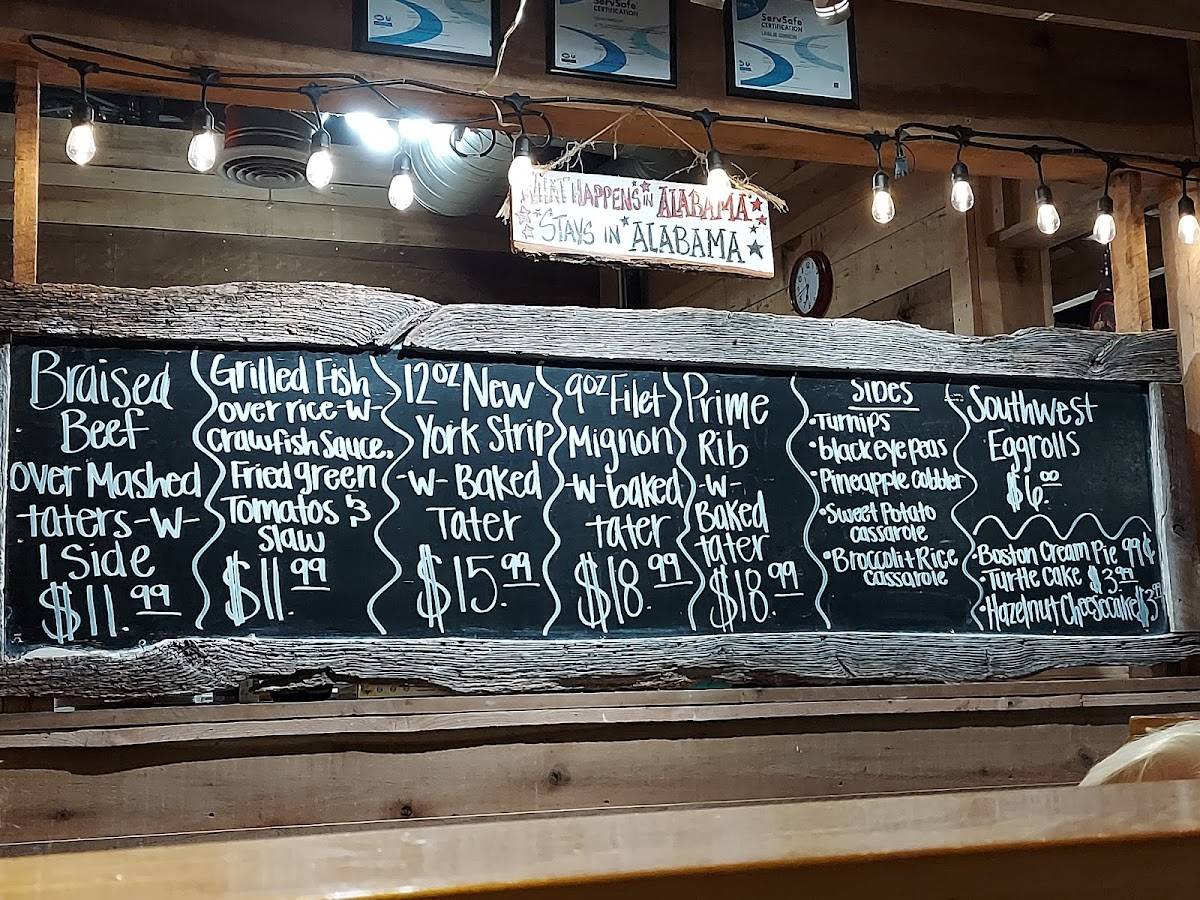 ServSafe
CERTIFICATION
ServSafe
CERTIFICATION
WHAT HAPPENS IN ALABAMA
STAYS IN ALABAMA
Braised
Beef
over Mashed
taters -w-
1 Side
$11.99
Grilled Fish
over rice -w-
Crawfish Sauce,
Fried green
Tomatos &
Slaw
$11.99
12oz New
York Strip
-w- Baked
Tater
$15.99
9oz Filet
Mignon
-w- baked
tater
$18.99
Prime
Rib
-w-
Baked
tater
$18.99
Sides
• Turnips
• black eye peas
• Pineapple cobbler
• Sweet Potato
cassarole
• Broccoli + Rice
cassarole
Southwest
Eggrolls
$6.00
• Boston Cream Pie 99¢
• Turtle Cake $3.99
• Hazelnut Cheesecake $3.99